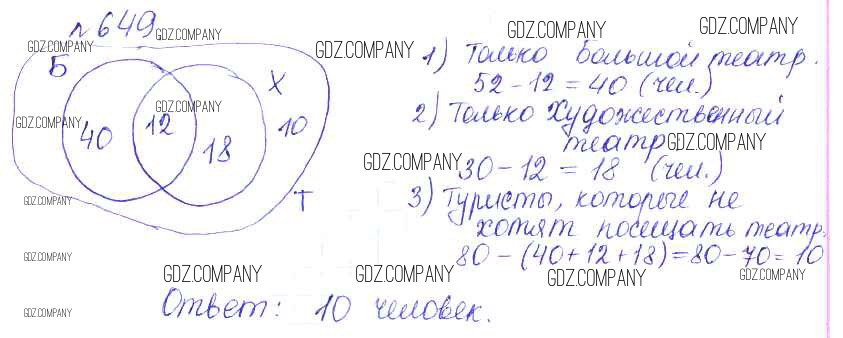 №649
GDZ.COMPANY
GDZ.COMPANY
GDZ.COMPANY
GDZ.COMPANY
GDZ.COMPANY
Б
Х
GDZ.COMPANY
GDZ.COMPANY
40
12
18
10
Т
GDZ.COMPANY
GDZ.COMPANY
GDZ.COMPANY
1) Только Большой театр.
52-12=40 (чел.)
2) Только Художественный
театр
GDZ.COMPANY
GDZ.COMPANY
30-12=18 (чел.)
3) Туристы, которые не
хотят посещать театр.
80-(40+12+18)=80-70=10
GDZ.COMPANY
GDZ.COMPANY
GDZ.COMPANY
GDZ.COMPANY
Ответ: 10 человек.